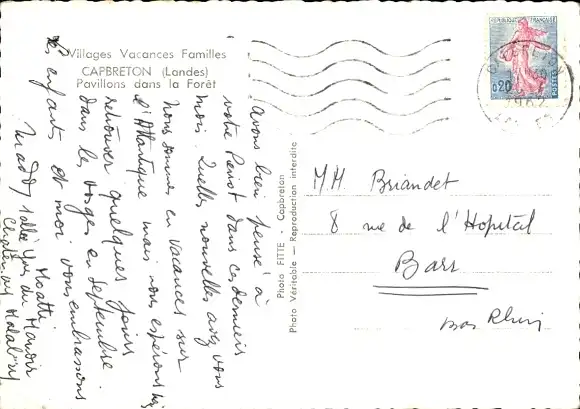 Villages Vacances Familles
CAPBRETON (Landes)
Pavillons dans la Forêt
Avons bien pensé à
votre Pierrot dans ces derniers
mois. Quelles nouvelles avez vous
Nous sommes en vacances sur
l'Atlantique mais nous espérons
retrouver quelques jours
dans les Vosges en septembre.
Les enfants et moi vous embrassons
Maddy
du Manoir
Chatenay Malabry
Photo FITTE - Capbreton
Photo Véritable - Reproduction interdite
REPUBLIQUE FRANÇAISE
0,20
POSTES
1962
MM. Briandet
8 rue de l'Hopital
Barr
Bas Rhin